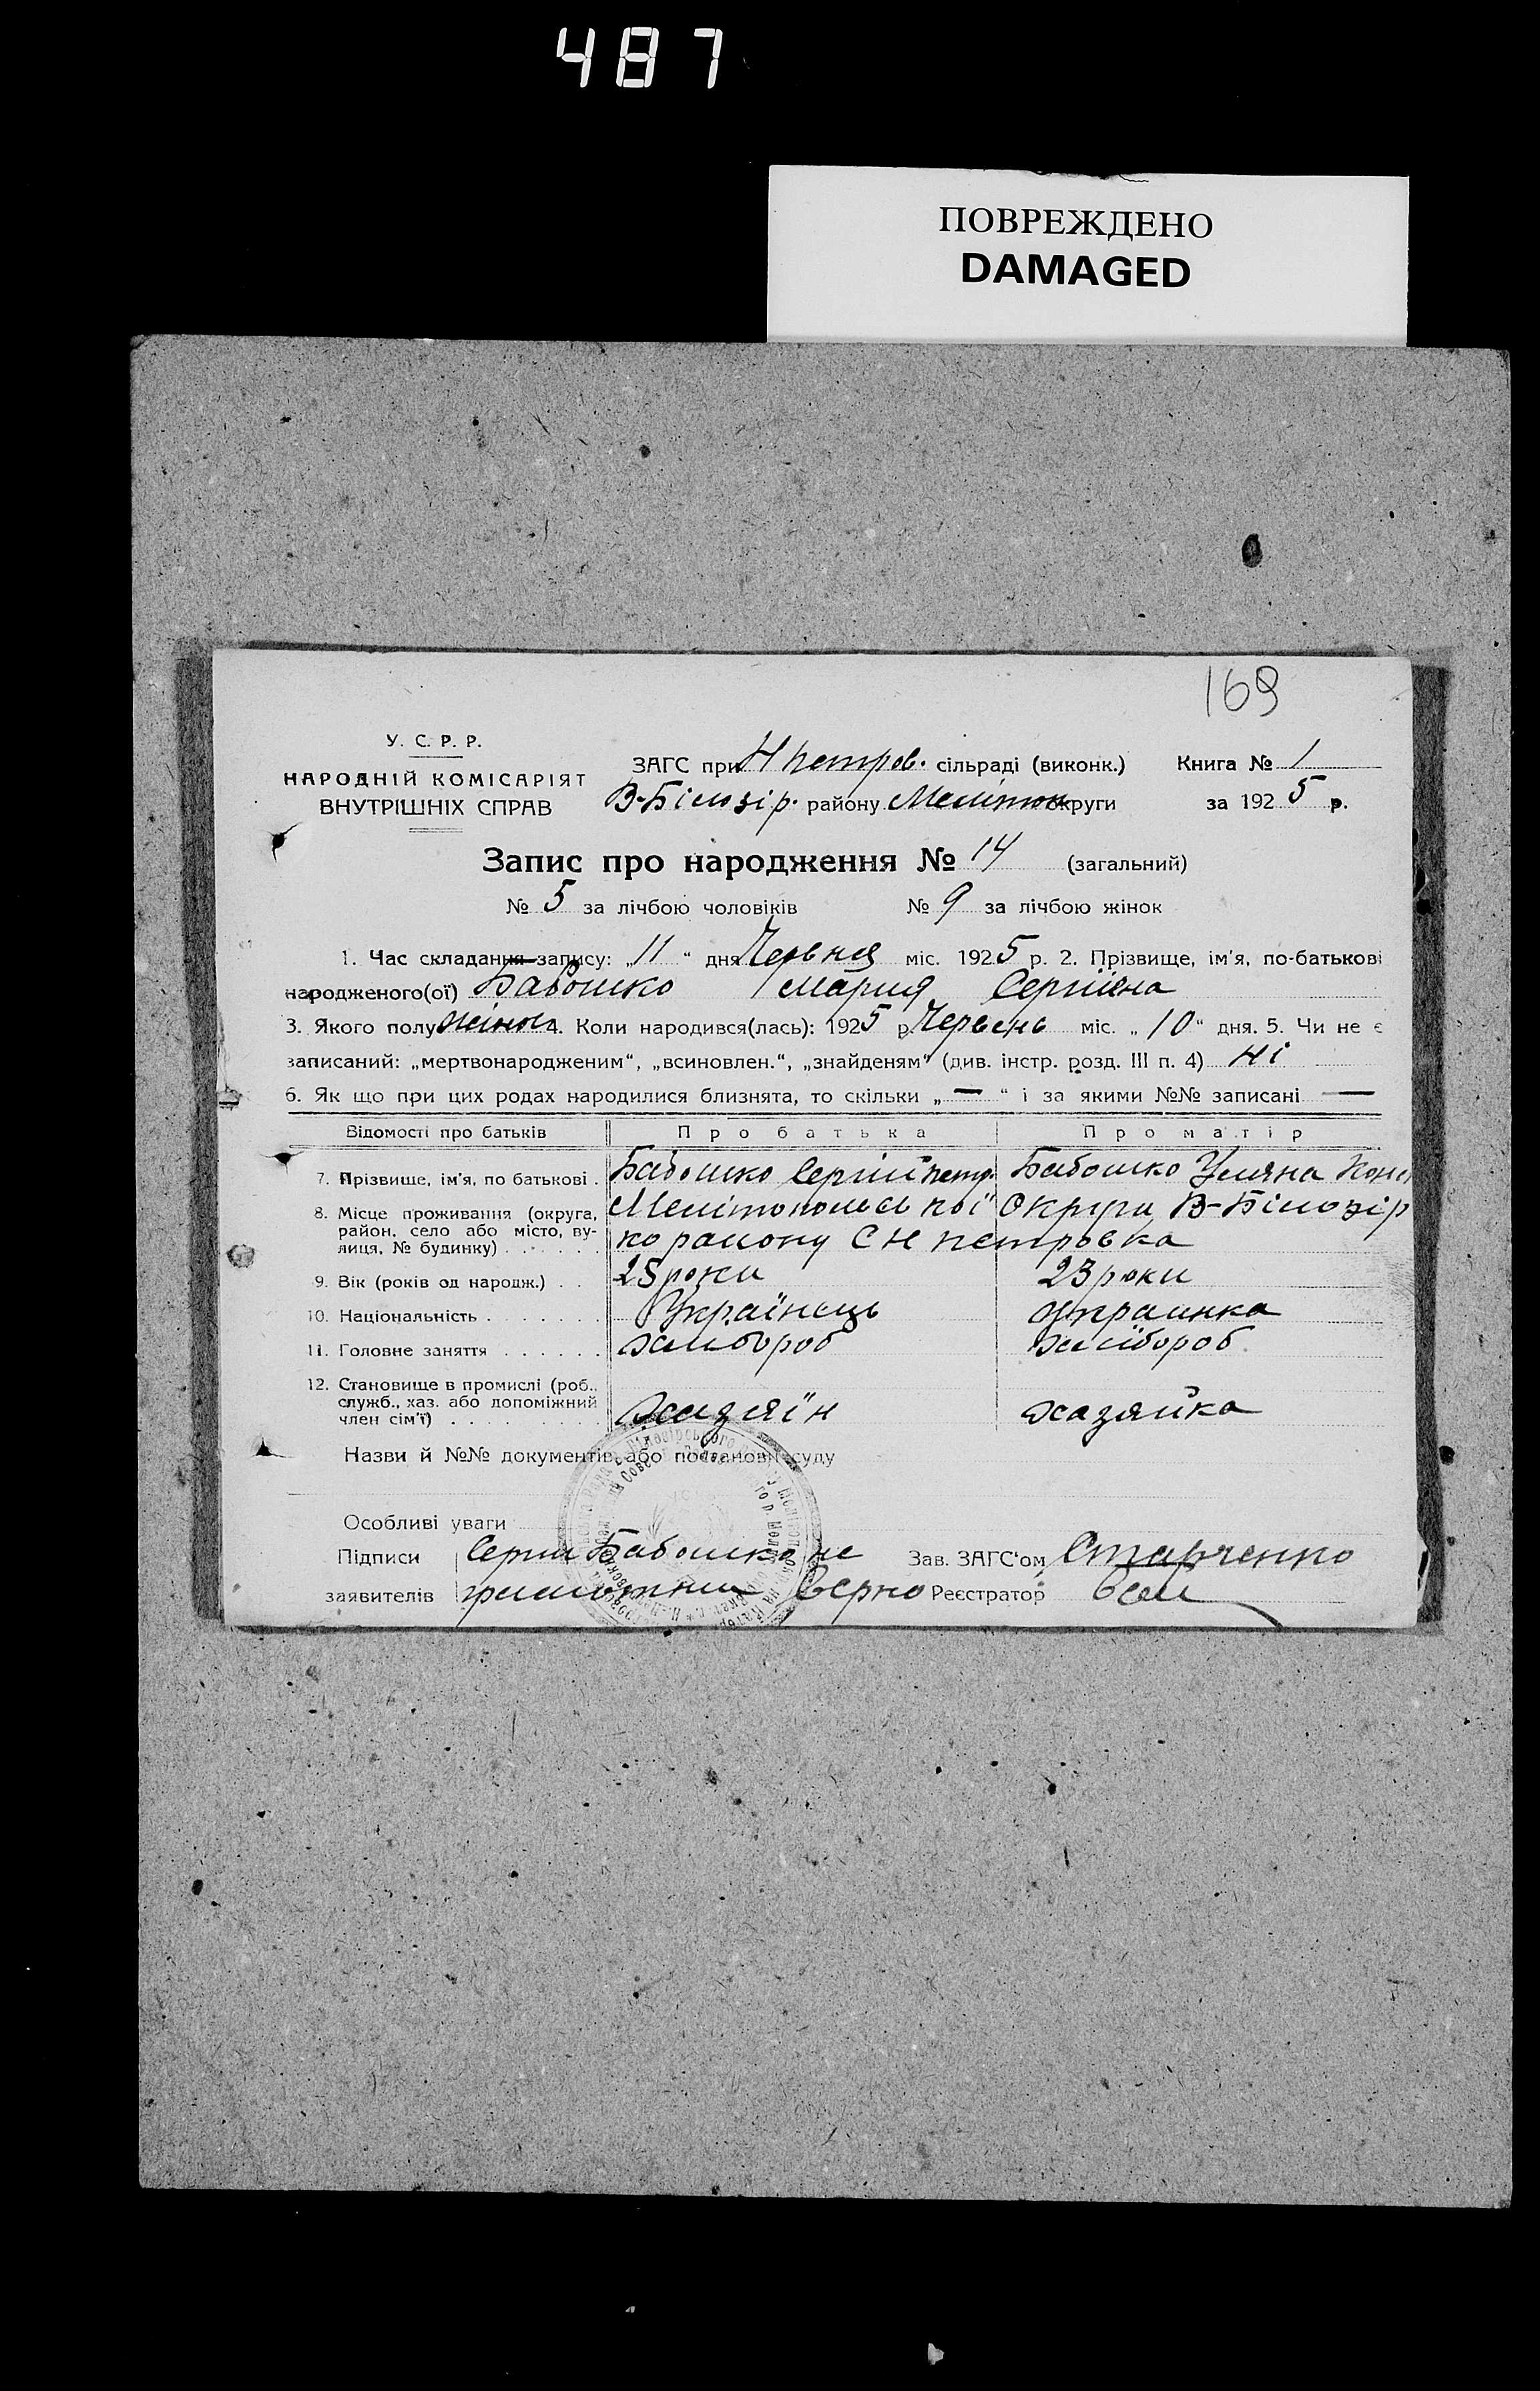 487
ПОВРЕЖДЕНО
DAMAGED
169
У. С. Р. Р.
НАРОДНІЙ КОМІСАРІЯТ
ВНУТРІШНІХ СПРАВ
ЗАГС при Н петров. сільраді (виконк.) Книга № 1
В-Білозір. району Мелітоп округи за 1925 р.
Запис про народження № 14 (загальний)
№ 5 за лічбою чоловіків № 9 за лічбою жінок
1. Час складання запису: „11“ дня Червня міс. 1925 р. 2. Прізвище, ім’я, по-батькові
народженого(ої) Бабошко Мария Сергіїена
3. Якого полу жіноч 4. Коли народився(лась): 1925 р. Червень міс. „10“ дня. 5. Чи не є
записаний: „мертвонародженим“, „всиновлен.“, „знайденям“ (див. інстр. розд. III п. 4) Ні
6. Як що при цих родах народилися близнята, то скільки „—“ і за якими №№ записані —
Відомості про батьків Про батька Про матір
7. Прізвище, ім’я, по батькові . Бабошко Сергій петр. Бабошко Уляна Конс
8. Місце проживання (округа, Мелітопольської Округи В-Білозір
район, село або місто, ву-
лиця, № будинку) . . . . . . ко району С Н петровка
9. Вік (років од народж.) . . 25 роки 23 роки
10. Національність . . . . . . . Українець Украинка
11. Головне заняття . . . . . . хлибороб хлібороб
12. Становище в промислі (роб.,
служб., хаз. або допоміжний
член сім’ї) . . . . . . . хазяїн хазяйка
Назви й №№ документів або постанови суду
Особливі уваги
Підписи Сергій Бабошко не Зав. ЗАГС’ом Старченко
заявителів грамотний Верно Реєстратор